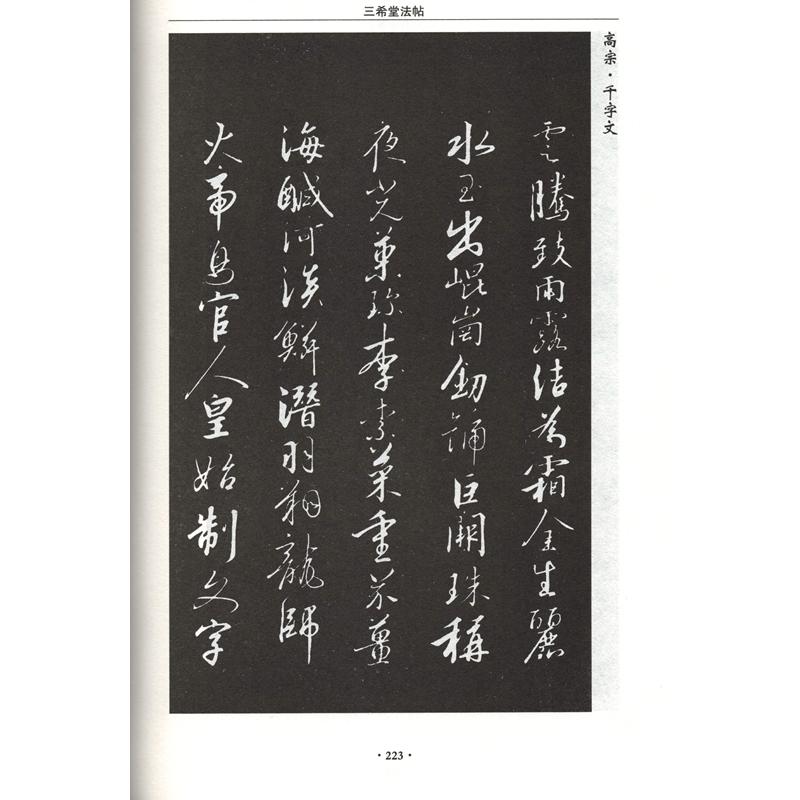 三希堂法帖
高宗·千字文
雲騰致雨露結為霜金生麗
水玉出崐崗釰號巨闕珠稱
夜光菓珍李柰菜重芥薑
海鹹河淡鱗潛羽翔龍師
火帝鳥官人皇始制文字
·223·